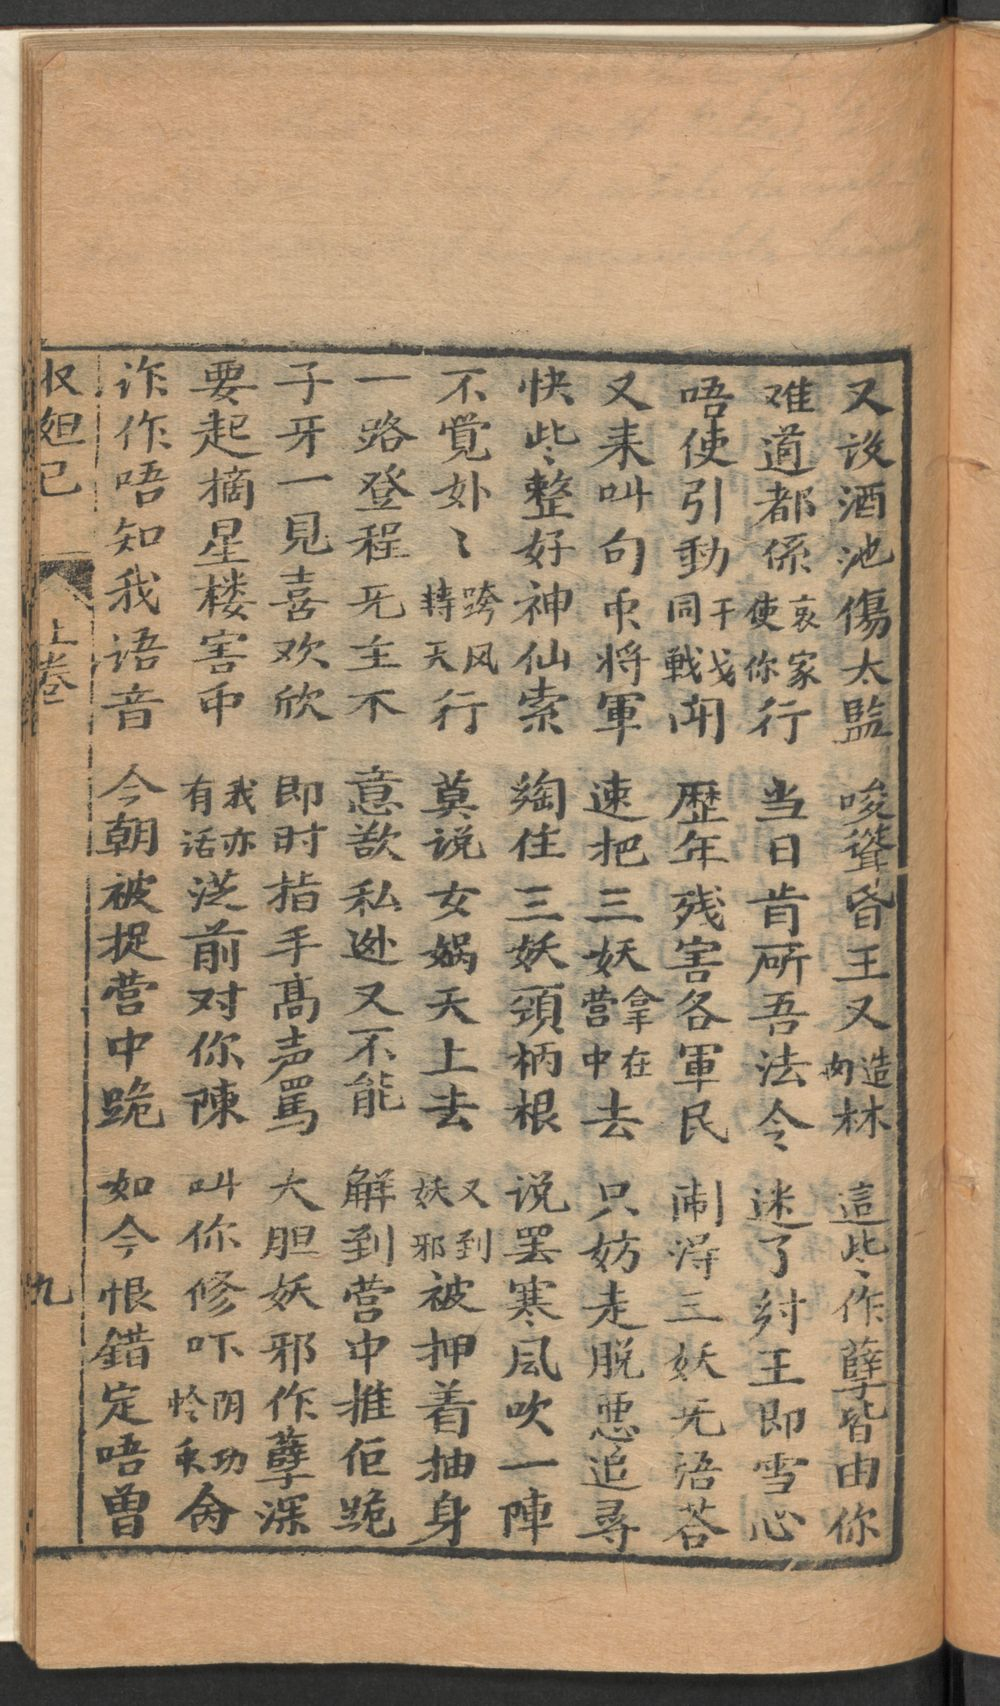 又设酒池傷太監 唆聳昏王又造肉林 這些作孽皆由你
难道都係哀家使你行 当日肯斫吾法令 迷了纣王即雪心
唔使引動干戈同戦闹 歴年残害各軍民 闹得三妖无语答
又来叫句帀将軍 速把三妖拿在营中去 只妨走脱悪追尋
快些整好神仙索 綯住三妖頭柄根 说罢寒风吹一陣
不覺処〻跨风持天行 莫说女娲天上去 又到妖邪被押着抽身
一路登程无主不 意欲私逊又不能 解到营中推佢跪
子牙一見喜欢欣 即时指手高声罵 大胆妖邪作孽深
要起摘星楼害帀 我亦有话从前对你陳 叫你修吓阴功怜禾禽
诈作唔知我语音 今朝被捉营中跪 如今恨錯定唔曾
収妲己 上卷 九